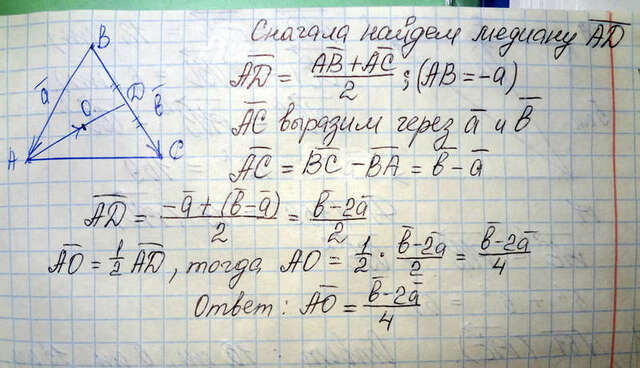 Сначала найдем медиану A̅D̅
A̅D̅ = (A̅B̅ + A̅C̅)/2 ; (AB = -a)
A̅C̅ выразим через a̅ и b̅
A̅C̅ = B̅C̅ - B̅A̅ = b̅ - a̅
A̅D̅ = (-a̅ + (b̅ - a̅))/2 = (b̅ - 2a̅)/2
A̅O̅ = 1/2 A̅D̅, тогда AO = 1/2 · (b̅ - 2a̅)/2 = (b̅ - 2a̅)/4
Ответ: A̅O̅ = (b̅ - 2a̅)/4
B
a̅
O
D
b̅
A
C